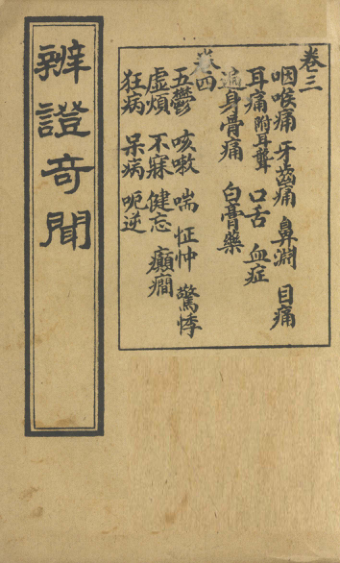 辨證奇聞
卷三
咽喉痛 牙齒痛 鼻淵 目痛
耳痛附耳聾 口舌 血症
遍身骨痛 白膏藥
卷四
五鬱 咳嗽 喘 怔忡 驚悸
虛煩 不寐 健忘 癲癇
狂病 呆病 呃逆